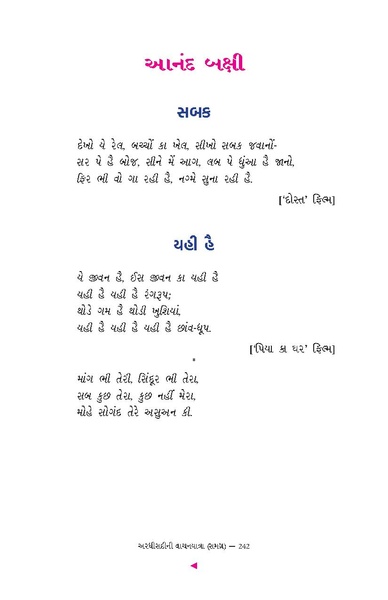 આનંદ બક્ષી
સબક
દેખો યે રેલ, બચ્ચોં કા ખેલ, સીખો સબક જવાનોં-
સર પે હૈ બોજ, સીને મેં આગ, લબ પે ધુંઆ હૈ જાનો,
ફિર ભી વો ગા રહી હૈ, નગ્મે સુના રહી હૈ.
['દોસ્ત' ફિલ્મ]
યહી હૈ
યે જીવન હૈ, ઈસ જીવન કા યહી હૈ
યહી હૈ યહી હૈ રંગરૂપ;
થોડે ગમ હૈ થોડી ખુશિયાં,
યહી હૈ યહી હૈ યહી હૈ છાંવ-ધૂપ.
['પિયા કા ઘર' ફિલ્મ]
*
માંગ ભી તેરી, સિંદૂર ભી તેરા,
સબ કુછ તેરા, કુછ નહીં મેરા,
મોહે સોગંદ તેરે અસુઅન કી.
અરધી સદીની વાચનયાત્રા (સમગ્ર) — 242